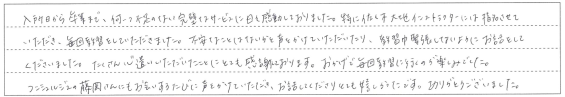 入所日から卒業まで、何一つ不足のない完璧なサービスに日々感動しておりました。特に佐々木大地インストラクターには指名させて
いただき、毎回教習をしていただきました。不安なことはないかと声をかけていただいたり、教習中緊張しないようにお話をして
くださいました。たくさん気遣いいただいたことにとても感謝しております。おかげで毎回教習に行くのが楽しみでした。
コンシェルジュの藤岡さんにもお会いするたびに声をかけていただき、お話してくださりとても嬉しかったです。ありがとうございました。